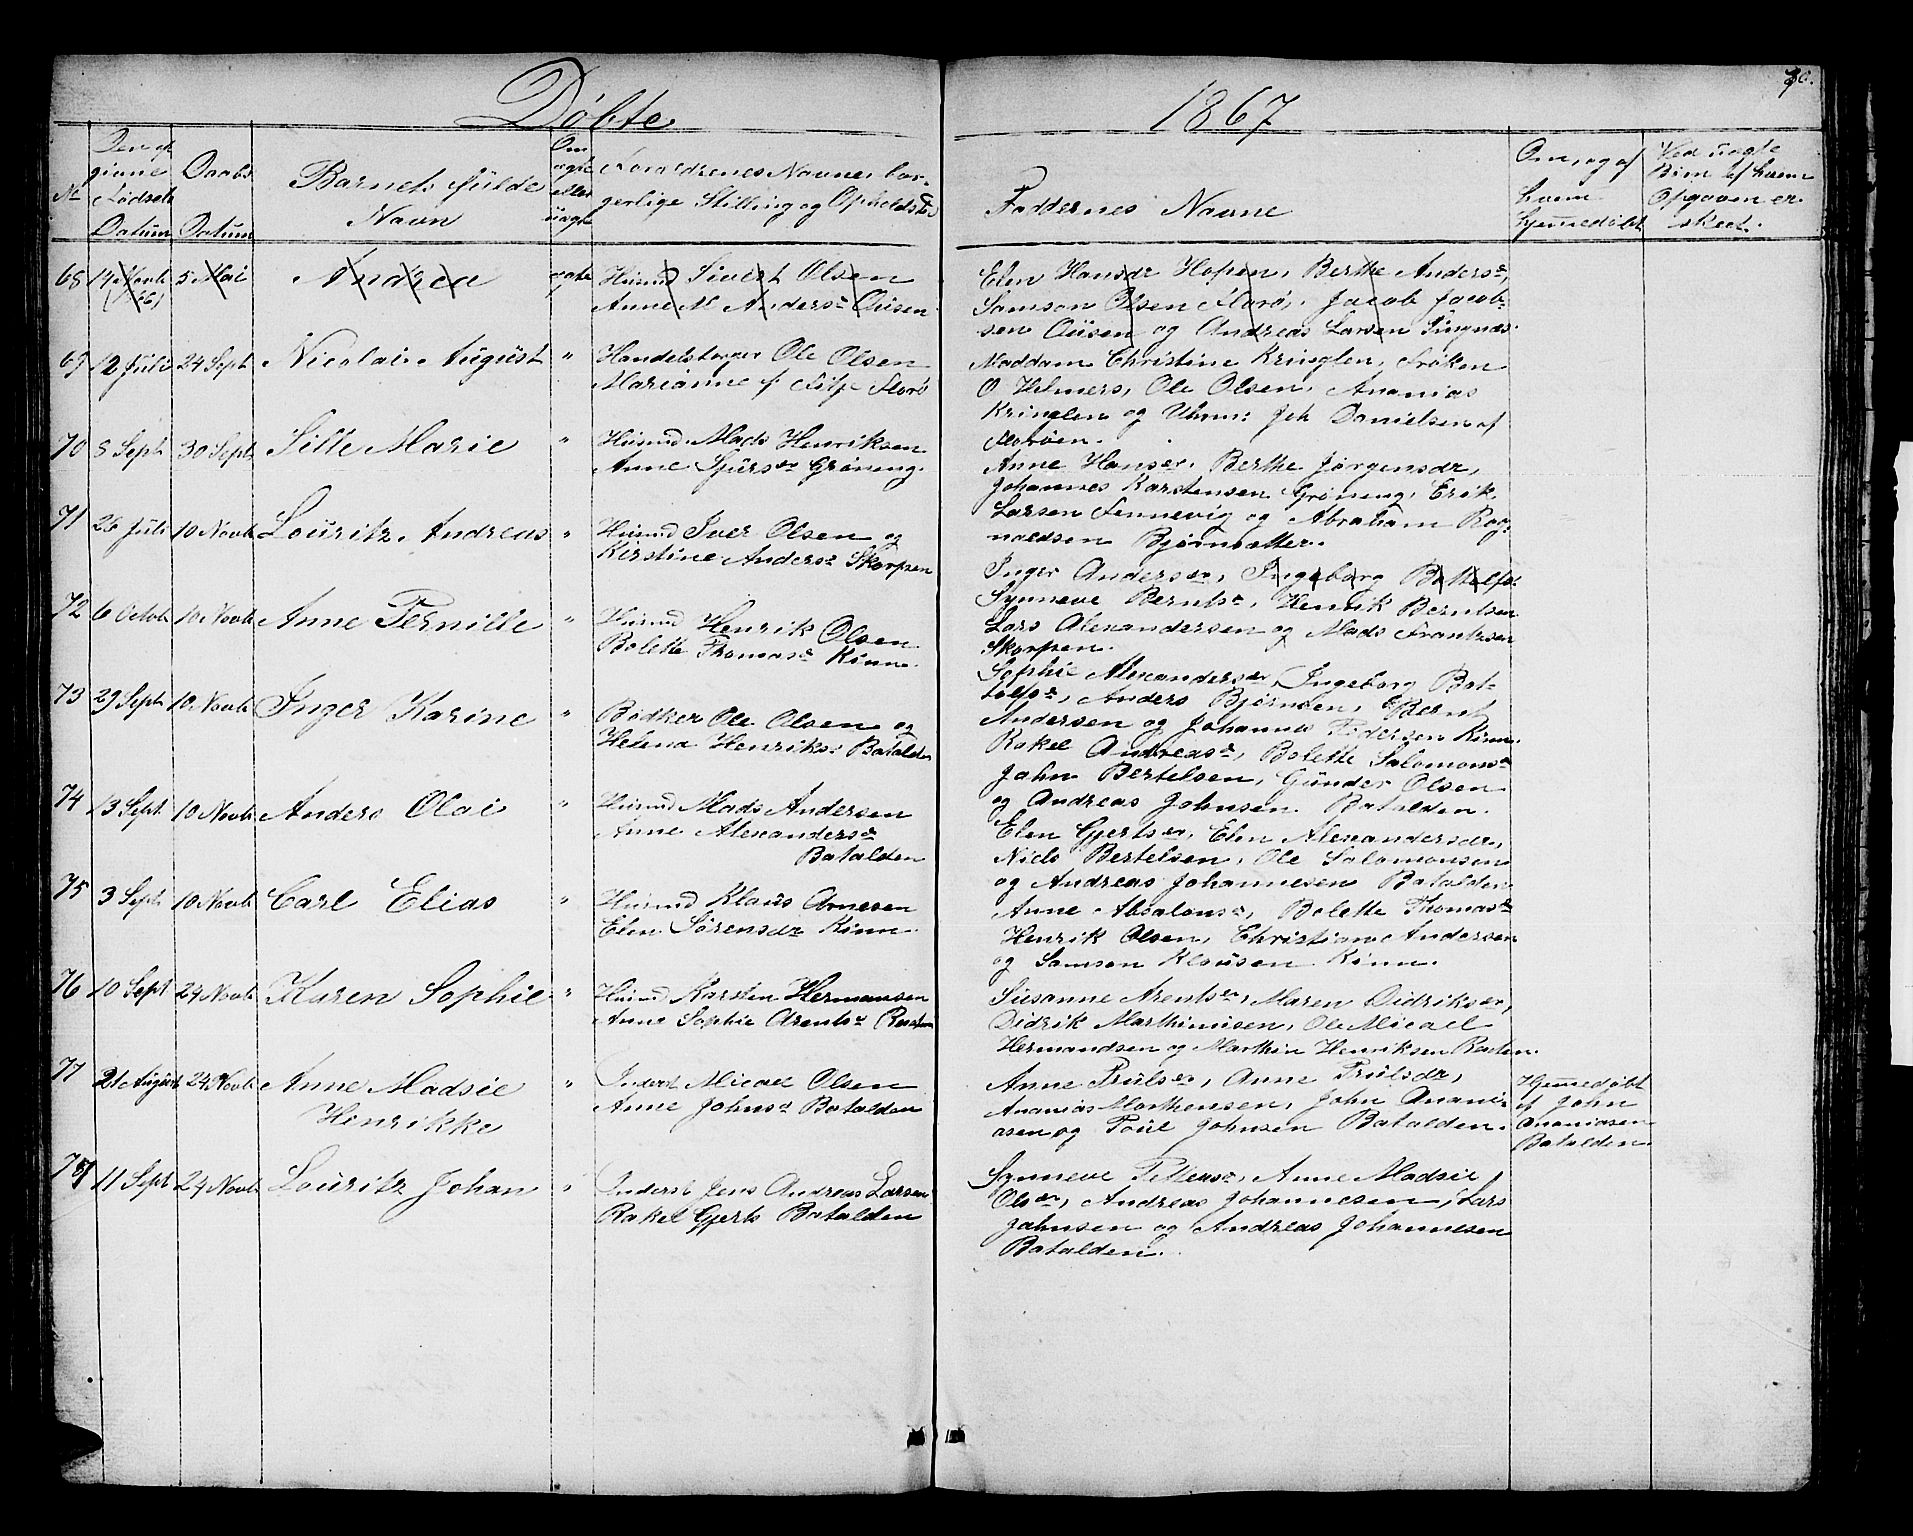 Døbte
1867
No
Den opgivne Fødsels Datum
Daabs Datum
Barnets fulde Navn
Om ægte eller uægte
Forældrenes Navne, borgerlige Stilling og Opholdsted
Faddernes Navne
Om, og af hvem hjemmedøbt
Ved uægte Børn af hvem Opgaven er skeet.
68 14 Novb (1866) 5 Mai Andrea ægte Husmd Sivert Olsen
Anne M Andersdr Ousen
Elen Hansdr Hopen, Berthe Andersdr,
Samson Olsen Florø, Jacob Jacob-
sen Ousen og Andreas Larsen
69 12 Juli 24 Sept Nicolai August " Ole Olsen
Marianne f. Florø
Maddam Christine Kringlen, Frøken
O. Helmers, Ole Olsen, Ananias
Kringlen og Joh Danielsen af
Florøen.
70 8 Sept 30 Sept Sille Marie " Husmd Mads Henriksen
Anne Grøneng.
Anne Hansdr, Berthe Jørgensdr,
Johannes Karstensen Grøneng, Erik
Larsen Fennevig og Abraham Rog-
naldsen Bjørnsætter.
71 26 Juli 10 Novb Louritz Andreas " Husmd Iver Olsen og
Kirstine Andersdr Skorpen
Inger Andersdr, Ingeborg
Synneve Berntsdr, Henrik Berntsen
Lars Alexandersen og Mads Frantzen
Skorpen.
72 6 Octob 10 Novb Anne Pernille " Husmd Henrik Olsen
Bolette Thomasdr Kinn.
Sophie Alexandersdr, Ingeborg Bot-
tolfsdr, Anders Bjørnsen, Bernt
Andersen og Johannes Pedersen Kinn.
73 29 Sept 10 Novb Inger Karine " Bødker Ole Olsen og
Helena Henriksdr Batalden
Rakel Andreasdr, Bolette Salomonsdr
John Bertelsen, Gunder Olsen
og Andreas Johnsen Batalden.
74 13 Sept 10 Novb Anders Olai " Husmd Mads Andersen
Anne Alexandersdr
Batalden
Elen Gjertsdr, Elen Alexandersdr,
Niels Bertelsen, Ole Salomonsen
og Andreas Johannesen Batalden
75 3 Sept 10 Novb Carl Elias " Husmd Klaus Arnesen
Elen Sørensdr Kinn.
Anne Absalonsdr, Bolette Thomasdr
Henrik Olsen, Christian Andersen
og Samson Klausen Kinn.
76 10 Sept 24 Novb Karen Sophie " Husmd Karsten Hermansen
Anne Sophie Arentsdr
Susanne Arentsdr, Maren Didriksdr,
Didrik Marthinusen, Ole Micael
Hermandsen og Marthin Henriksen
77 21 August 24 Novb Anne Madsie
Henrikke " Inderst Micael Olsen
Anne Johnsdr Batalden
Anne Trulsdr, Anne Trulsdr,
Ananias Marthensen, John Anani-
asen og Poul Johnsen Batalden.
Hjemmedøbt
af John
Ananiasen
Batalden
78 11 Sept 24 Novb Louritz Johan " Inderst Jens Andreas Larsen
Rakel Gjerts Batalden
Synneve Anne Madsie
Olsdr, Andreas Johannesen, Lars
Johnsen og Andreas Johannesen
Batalden.